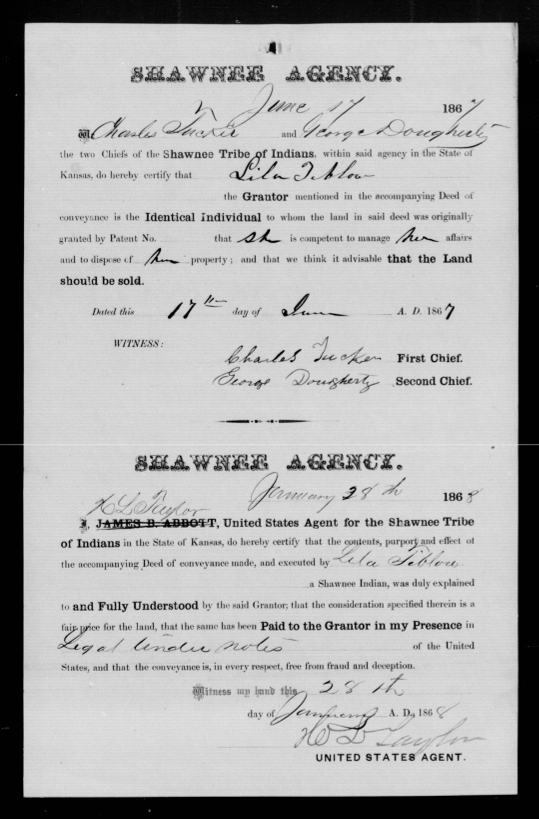 SHAWNEE AGENCY.
June 17 1867
We Charles Tucker and George Dougherty
the two Chiefs of the Shawnee Tribe of Indians, within said agency in the State of
Kansas, do hereby certify that Lila Tiblow
the Grantor mentioned in the accompanying Deed of
conveyance is the Identical Individual to whom the land in said deed was originally
granted by Patent No. that sh is competent to manage her affairs
and to dispose of her property; and that we think it advisable that the Land
should be sold.
Dated this 17th day of June A. D. 1867
WITNESS:
Charles Tucker First Chief.
George Dougherty Second Chief.
SHAWNEE AGENCY.
January 28th 1868
H L Taylor
I, JAMES B. ABBOTT, United States Agent for the Shawnee Tribe
of Indians in the State of Kansas, do hereby certify that the contents, purport and effect of
the accompanying Deed of conveyance made, and executed by Lila Tiblow
a Shawnee Indian, was duly explained
to and Fully Understood by the said Grantor; that the consideration specified therein is a
fair price for the land, that the same has been Paid to the Grantor in my Presence in
Legal Tender notes of the United
States, and that the conveyance is, in every respect, free from fraud and deception.
Witness my hand this 28th
day of January A. D., 1868
H L Taylor
UNITED STATES AGENT.